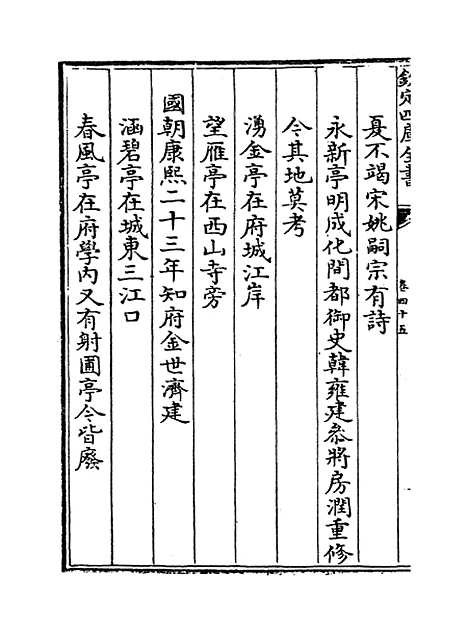 欽定四庫全書
卷四十五
夏不竭宋姚嗣宗有詩
永新亭明成化間都御史韓雍建叅將房潤重修
今其地莫考
湧金亭在府城江岸
望雁亭在西山寺旁
國朝康熙二十三年知府金世濟建
涵碧亭在城東三江口
春風亭在府學內又有射圃亭今皆廢